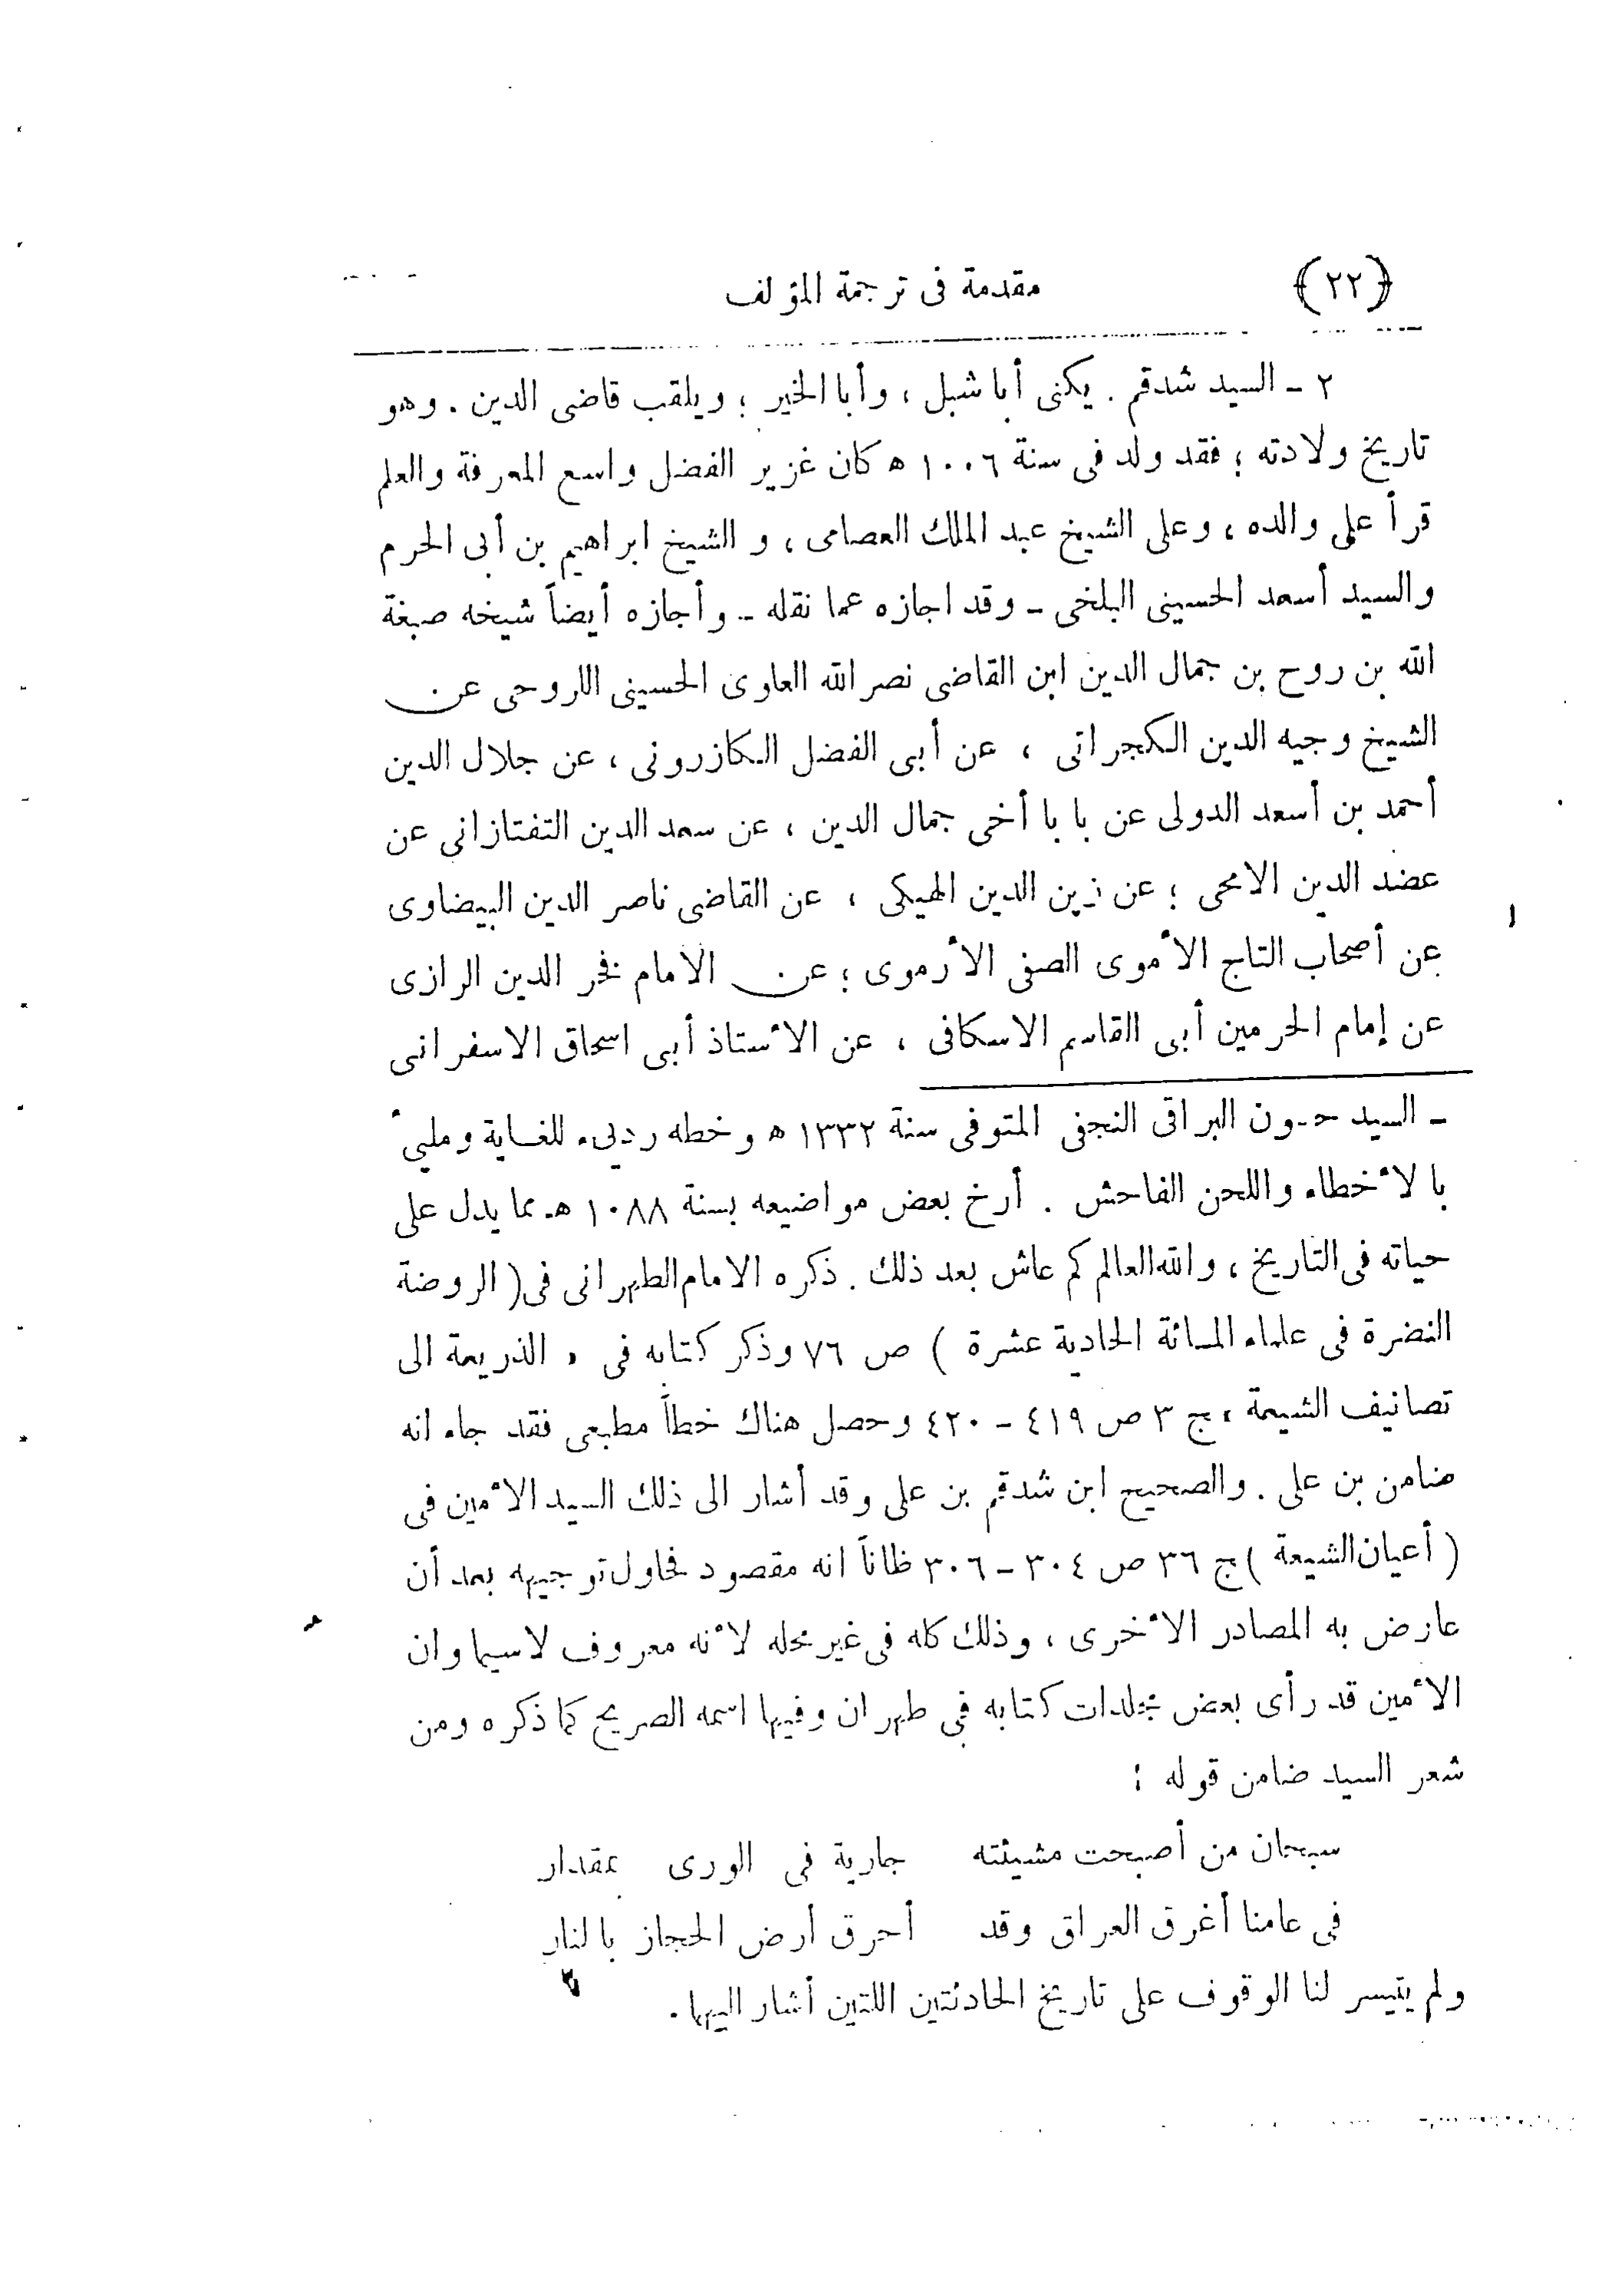 (٢٢) مقدمة فى ترجمة المؤلف
٢ ـ السيد شدقم . يكنى أبا شبل ، وأبا الخير ؛ ويلقب قاضى الدين . وهو
تاريخ ولادته ؛ فقد ولد فى سنة ١٠٠٦ ه كان غزير الفضل واسع المعرفة والعلم
قرأ على والده ، وعلى الشيخ عبد الملك العصامى ، و الشيخ ابراهيم بن أبى الحرم
والسيد أسعد الحسينى البلخى ـ وقد اجازه عما نقله ـ وأجازه أيضاً شيخه صبغة
الله بن روح بن جمال الدين ابن القاضى نصر الله العلوى الحسينى اللاروحى عن
الشيخ وجيه الدين الكجراتى ، عن أبى الفضل الكازرونى ، عن جلال الدين
أحمد بن أسعد الدولى عن بابا أخى جمال الدين ، عن سعد الدين التفتازانى عن
عضد الدين الامحى ؛ عن زين الدين الهيكى ، عن القاضى ناصر الدين البيضاوى
عن أصحاب التاج الأموى الصفى الأرموى ؛ عن الامام فخر الدين الرازى
عن إمام الحرمين أبى القاسم الاسكافى ، عن الأستاذ أبى اسحاق الاسفرانى
ـ السيد حسون البراقى النجفى المتوفى سنة ١٣٣٢ ه وخطه ردىء للغاية ومليء
بالأخطاء واللحن الفاحش . أرخ بعض مواضيعه بسنة ١٠٨٨ هـ مما يدل على
حياته فى التاريخ ، والله العالم كم عاش بعد ذلك . ذكره الامام الطهرانى فى ( الروضة
النضرة فى علماء المائة الحادية عشرة ) ص ٧٦ وذكر كتابه فى « الذريعة الى
تصانيف الشيعة » ج ٣ ص ٤١٩ ـ ٤٢٠ وحصل هناك خطأ مطبعى فقد جاء انه
ضامن بن على . والصحيح ابن شدقم بن على وقد أشار الى ذلك السيد الأمين فى
( أعيان الشيعة ) ج ٣٦ ص ٣٠٤ ـ ٣٠٦ ظاناً انه مقصود فحاول توجيهه بعد أن
عارض به المصادر الأخرى ، وذلك كله فى غير محله لأنه معروف لاسيما وان
الأمين قد رأى بعض مجلدات كتابه فى طهران وفيها اسمه الصريح كما ذكره ومن
شعر السيد ضامن قوله :
سبحان من أصبحت مشيئته جارية فى الورى بمقدار
فى عامنا أغرق العراق وقد أحرق أرض الحجاز بالنار
ولم يتيسر لنا الوقوف على تاريخ الحادثتين اللتين أشار اليهما .